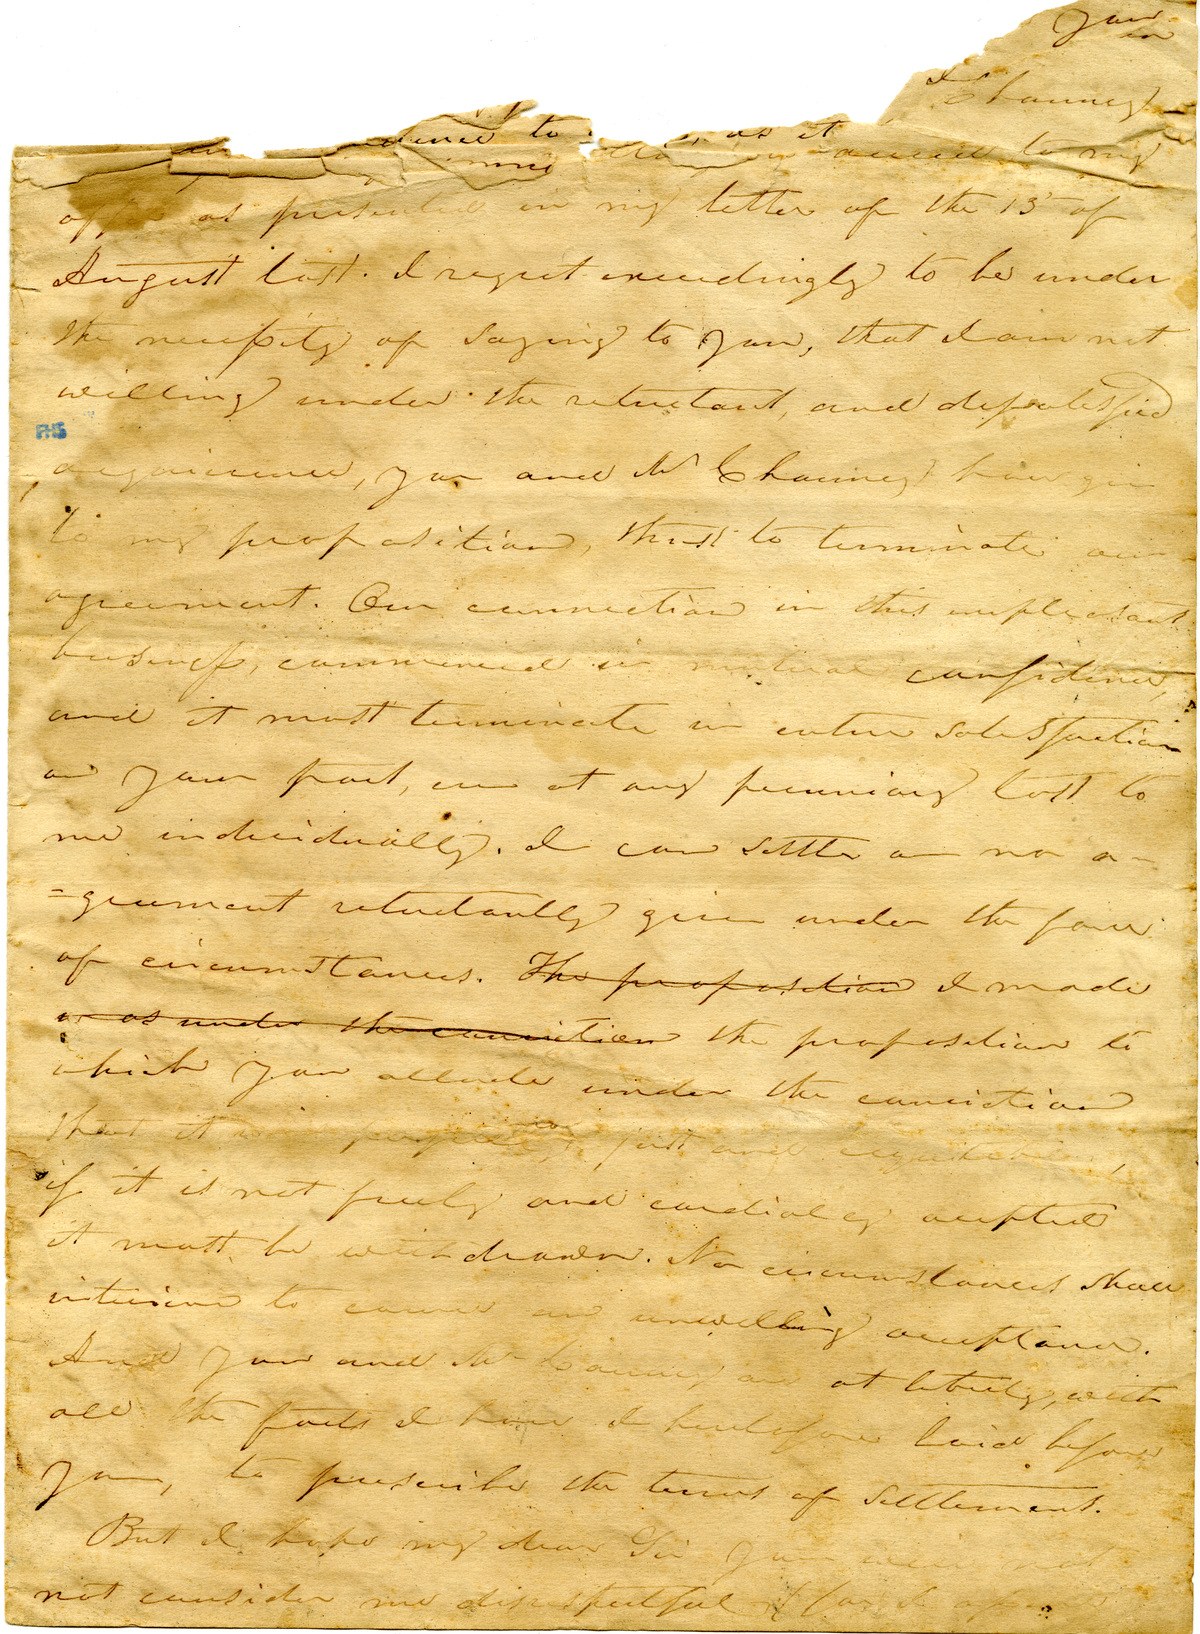 your
I
Chauncey
to as it
to my
offer as presented in my letter of the 13th of
August last. I regret exceedingly to be under
the necessity of saying to you, that I am not
willing under the reluctant, and dissatisfied
acquiescence, you and Mr Chauncey have given
to my proposition, thus to terminate our
agreement. Our connection in this unpleasant
business, commenced in mutual confidence,
and it must terminate in entire satisfaction
on your part, even at any pecuniary lost to
me individually. I can settle on no a-
=greement reluctantly given under the force
of circumstances. The proposition I made
was under the conviction the proposition to
which you allude under the conviction
that it was just and equitable,
if it is not freely and cordialy accepted
it must be withdrawn. No circumstances shall
intervene to cause an unwilling acceptance.
And you and Mr Chauncey are at liberty, with
all the facts I have I heretofore laid before
you, to prescribe the terms of settlement.
But I hope my dear Sir you will not
not consider me disrespectful if I
FHS